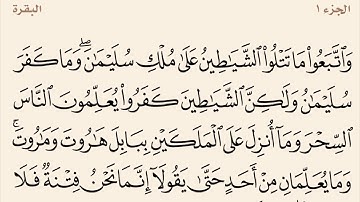 الجزء ١ البقرة
وَٱتَّبَعُوا۟ مَا تَتْلُوا۟ ٱلشَّيَـٰطِينُ عَلَىٰ مُلْكِ سُلَيْمَـٰنَ ۖ وَمَا كَفَرَ
سُلَيْمَـٰنُ وَلَـٰكِنَّ ٱلشَّيَـٰطِينَ كَفَرُوا۟ يُعَلِّمُونَ ٱلنَّاسَ
ٱلسِّحْرَ وَمَآ أُنزِلَ عَلَى ٱلْمَلَكَيْنِ بِبَابِلَ هَـٰرُوتَ وَمَـٰرُوتَ ۚ
وَمَا يُعَلِّمَانِ مِنْ أَحَدٍ حَتَّىٰ يَقُولَآ إِنَّمَا نَحْنُ فِتْنَةٌ فَلَا